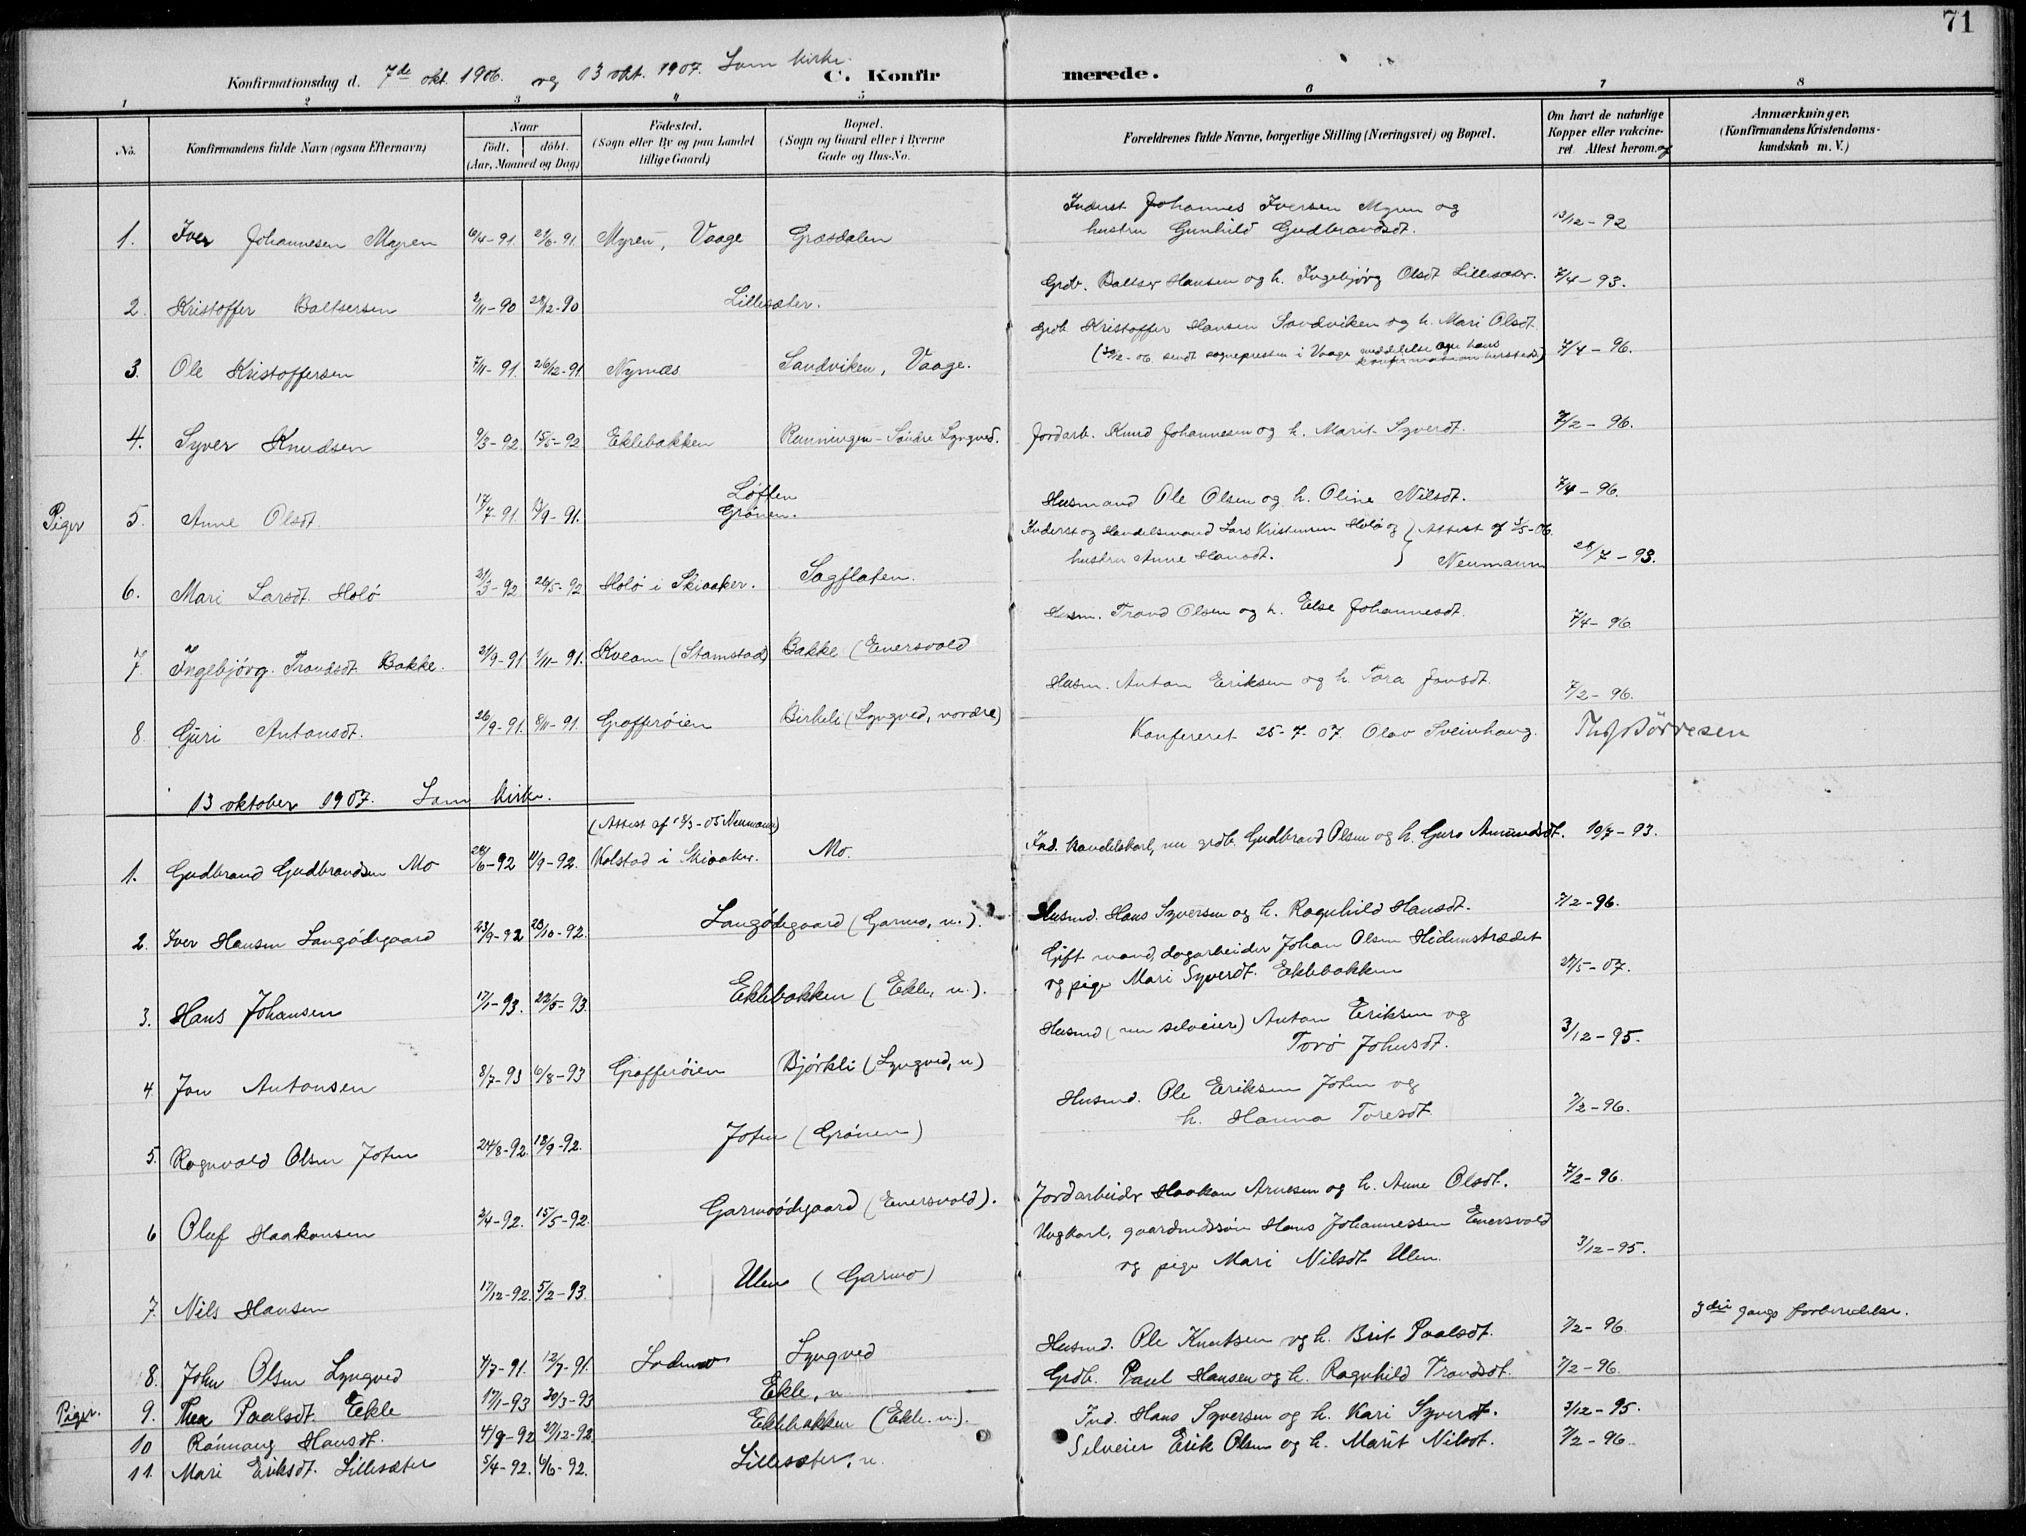 71
Konfirmationsdag d. 7de okt. 1906. og 13 okt. 1907. Lom kirke.
C. Konfirmerede.
1 2 3 4 5 6 7 8
No.
Konfirmandens fulde Navn (ogsaa Efternavn)
Naar
födt. döbt.
(Aar, Maaned og Dag)
Födested.
(Sogn eller By og paa Landet
tillige Gaard)
Bopæl.
(Sogn og Gaard eller i Byerne
Gade og Hus-No.
Forældrenes fulde Navne, borgerlige Stilling (Næringsvei) og Bopæl.
Om havt de naturlige
Kopper eller vakcine-
ret. Attest herom. af
Anmærkninger.
(Konfirmandens Kristendoms-
kundskab m. V.)
1. Iver Johannesen Myren 6/4-91 21/6-91 Myren, Vaage Græsdalen
Inderst Johannes Iversen Myren og
hustru Gunhild Gudbrandsdt. 13/12-92
2. Kristoffer Baltsersen 2/11-90 28/12-90 Lillesæter.
Grdb. Baltser Hansen og h. Ingebjörg Olsdt Lillesæter. 7/4-93.
3. Ole Kristoffersen 7/11-91. 26/12-91 Nymæs Sandviken, Vaage.
Grdb. Kristoffer Hansen Sandviken og h. Mari Olsdt.
(30/12-06 sendt sognepresten i Vaage meddelelse om hans
konfirmation hersteds) 7/4-96.
4. Syver Knudsen 9/3-92 15/5-92 Eklebakken Runningen-Söndre Lyngved.
Jordarb. Knud Johannesen og h. Marit Syverdt. 7/2-96.
Piger 5. Anne Olsdt 17/7-91 13/9-91. Löften
Grönen.
Husmand Ole Olsen og h. Oline Nilsdt. 7/4-96.
6. Mari Larsdt. Holö 21/3-92 26/5-92 Holö i Skiaaker. Sagflaten.
Inderst og Handelsmand Lars Kristensen Holö og } Attest af 1/5-06.
hustru Anne Hansdt. } Neumann 28/7-93.
7. Ingebjörg Trondsdt. Bakke. 21/9-91 1/11-91. Kveam (Stamstad) Bakke (Enersvold
Husm. Trond Olsen og h. Else Johannesdt. 7/4-96.
8. Guri Antonsdt. 26/9-91. 8/11-91. Grafferöien Birkeli (Lyngved, nordre)
Husm. Anton Eriksen og h. Tora Jonsdt. 7/2-96.
Konfereret 25-7-07. Olav Sveinhaug.
13 oktober 1907. Lom kirke.
(Attest af 18/3-05 Neumann)
1. Gudbrand Gudbrandsen Mo 28/6-92 11/9-92. Kolstad i Skiaaker. Mo.
Ind. handelskarl, nu grdb. Gudbrand Olsen og h. Guro Amundsdt. 10/7-93.
2. Iver Hansen Langödegaard 23/9-92 23/10-92. Langödegaard (Garmo, n.).
Husmd. Hans Syversen og h. Ragnhild Hansdt. 7/2-96.
3. Hans Johansen 17/1-93. 22/5-93. Eklebakken (Ekle, n.).
Gift mand, dagarbeider Johan Olsen Hidemstrædet
og pige Mari Syverdt. Eklebakken 27/5-07.
4. Jon Antonsen 8/7-93 6/8-93 Grafferöien Björkli (Lyngved, n)
Husmd (nu selveier) Anton Eriksen og
Torö Johnsdt. 3/12-95.
5. Ragnvald Olsen Jotun 24/8-92. 18/9-92. Jotun (Grönen)
Husmd. Ole Eriksen Jotun og
h. Hanna Toresdt 7/2-96.
6 Oluf Haakonsen 2/4-92. 15/5-92. Garmoödegaard (Enersvold).
Jordarbeider Haakon Arnesen og h. Anne Olsdt. 7/2-96.
7. Nils Hansen 17/12-92. 5/2-93. Ulen (Garmo)
Ungkarl, gaardmdssön Hans Johannessen Enersvold
og pige Mari Nilsdt Ulen. 3/12-95.
8. John Olsen Lyngved 4/3-91. 12/7-91. Lyngved
Husmd. Ole Knutsen og h. Brit Paalsdt. 7/2-96. 3die gangs forberedelse.
Piger. 9. Thea Paalsdt. Ekle 17/1-93 30/3-93 Ekle, n
Grdb. Paul Hansen og h. Ragnhild Trondsdt. 7/2-96
10 Rönnaug Hansdt. 4/9-92 27/12-92. Eklebakken (Ekle. n.).
Ind. Hans Syversen og h. Kari Syverdt. 3/12-95.
11. Mari Eriksdt. Lillesæter 5/4-92. 6/6-92. Lillesæter, n.
Selveier Erik Olsen og h. Marit Nilsdt. 7/2-96.